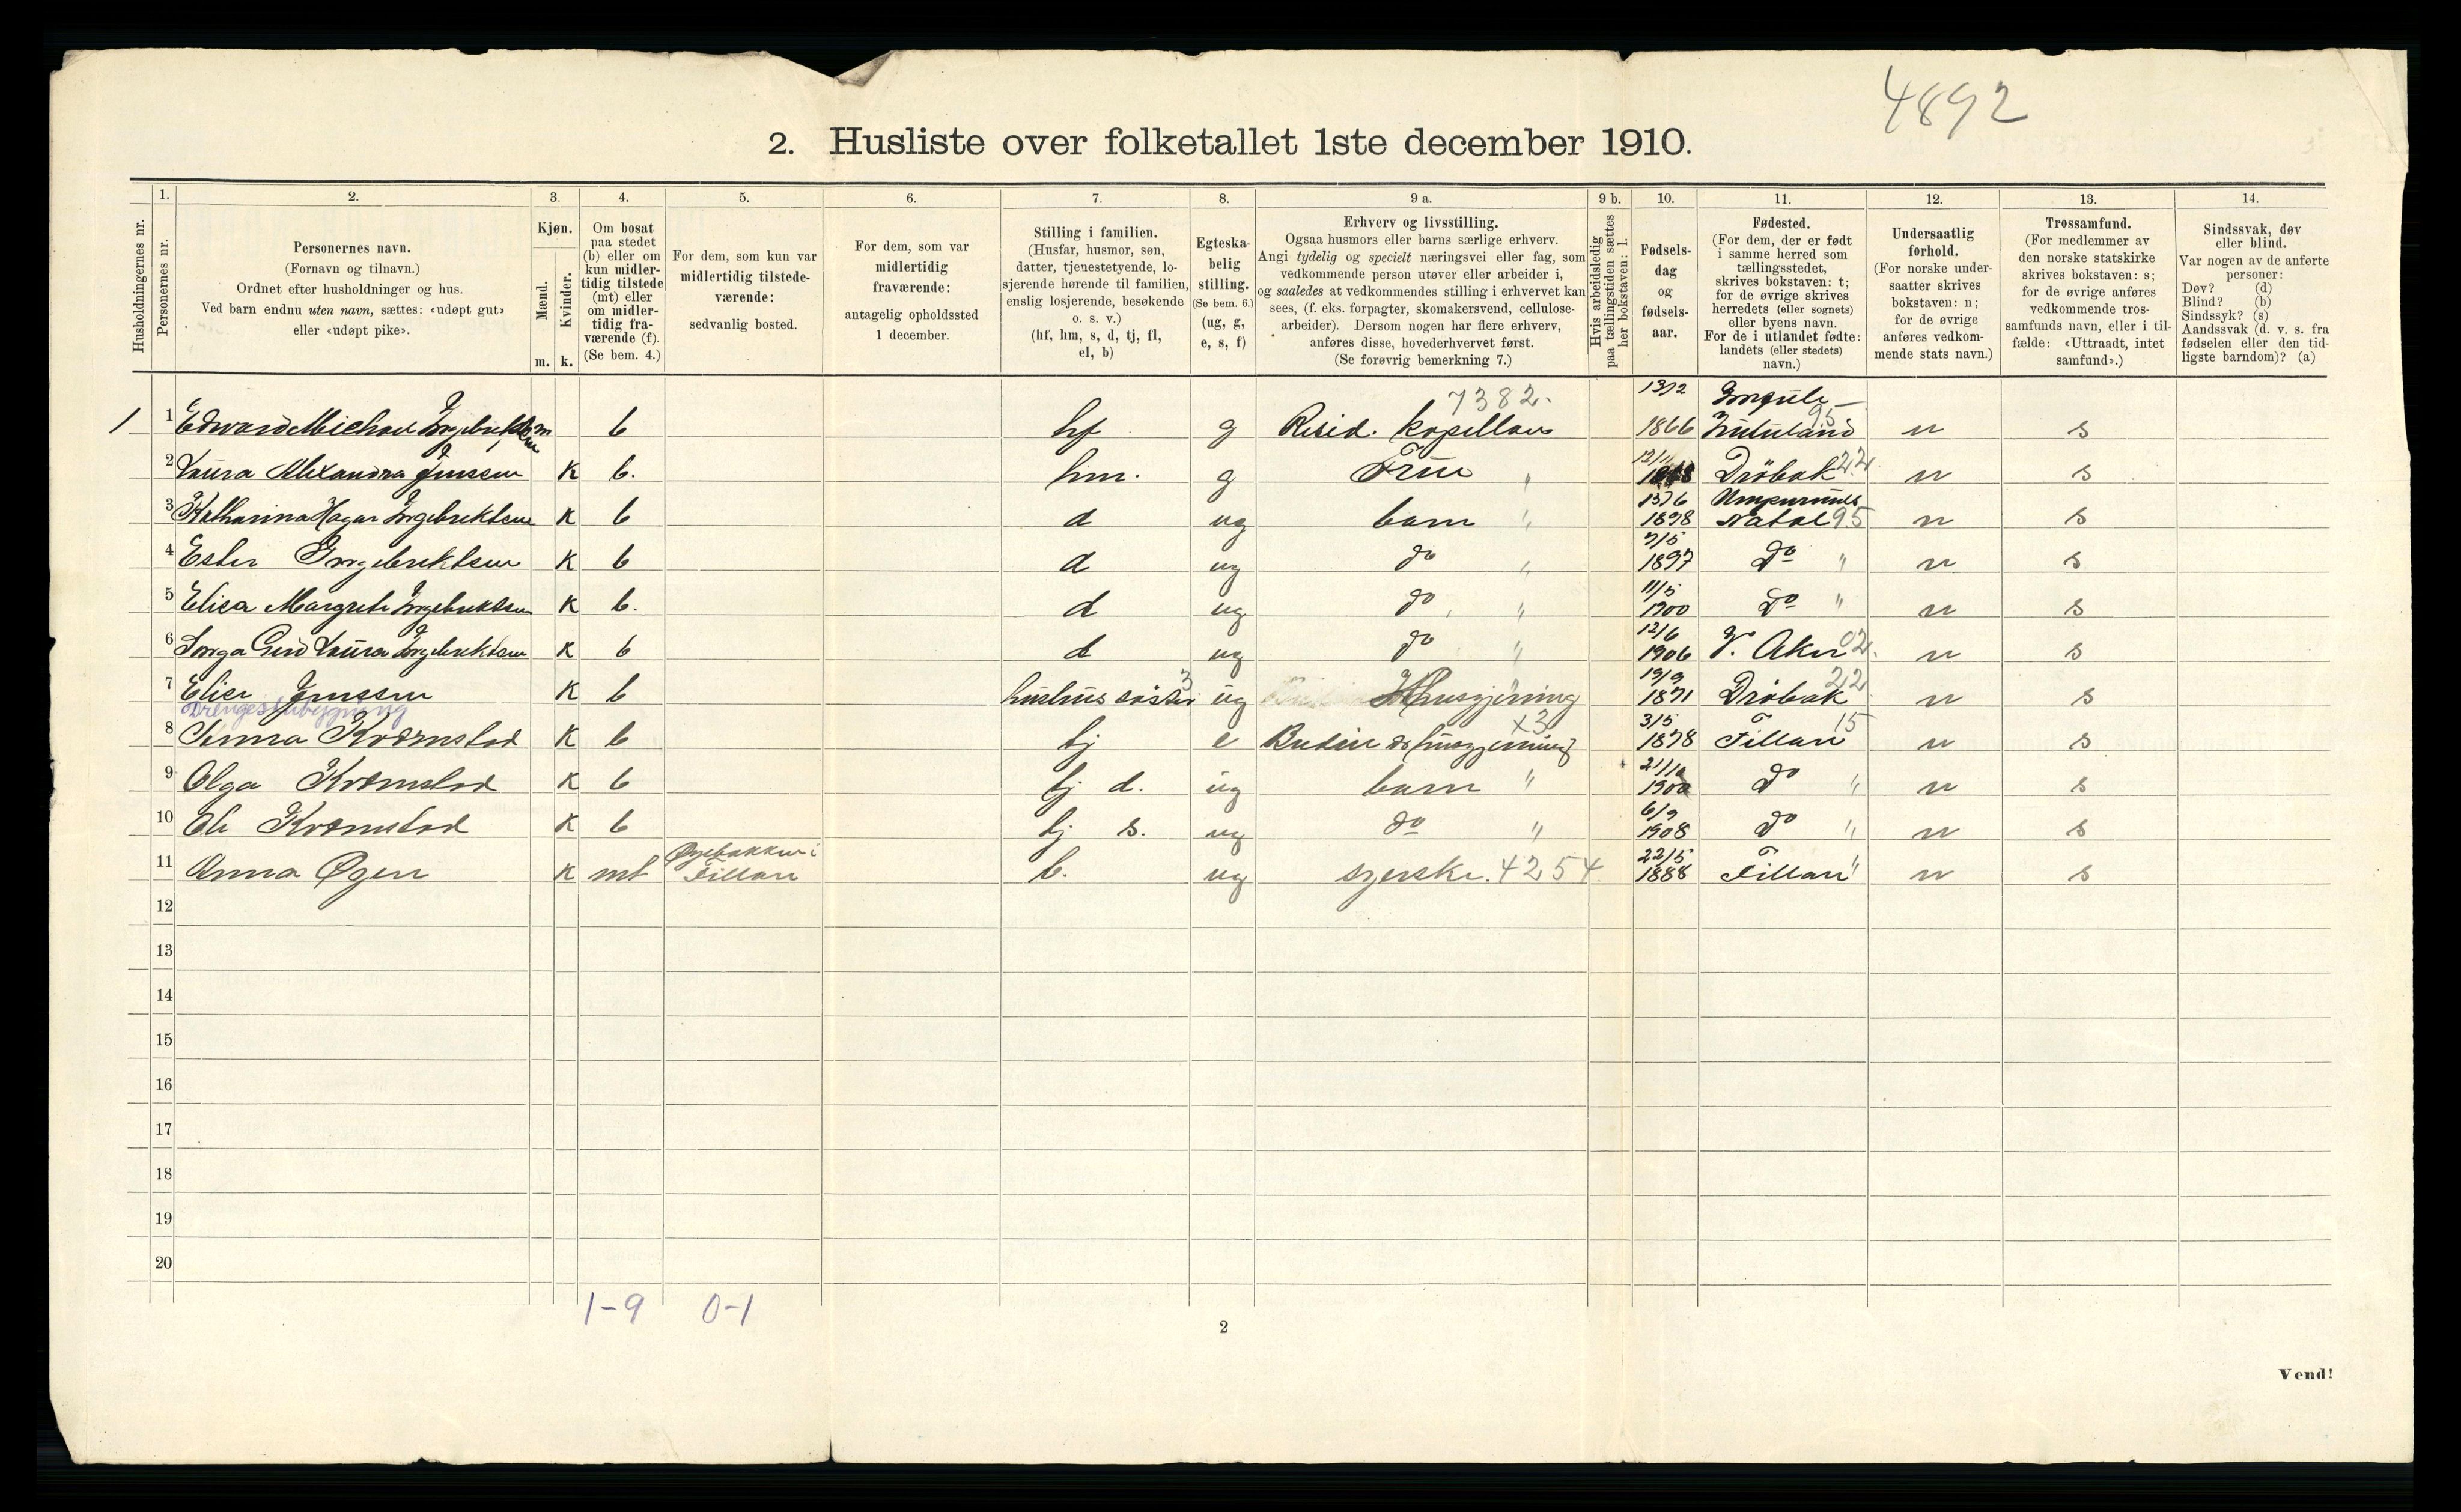 4892
2. Husliste over folketallet 1ste december 1910.
Husholdningernes nr.
1.
Personernes nr.
2.
Personernes navn.
(Fornavn og tilnavn.)
Ordnet efter husholdninger og hus.
Ved barn endnu uten navn, sættes: «udøpt gut»
eller «udøpt pike».
3.
Kjøn.
Mænd.
Kvinder.
m. k.
4.
Om bosat
paa stedet
(b) eller om
kun midler-
tidig tilstede
(mt) eller
om midler-
tidig fra-
værende (f).
(Se bem. 4.)
5.
For dem, som kun var
midlertidig tilstede-
værende:
sedvanlig bosted.
6.
For dem, som var
midlertidig
fraværende:
antagelig opholdssted
1 december.
7.
Stilling i familien.
(Husfar, husmor, søn,
datter, tjenestetyende, lo-
sjerende hørende til familien,
enslig losjerende, besøkende
o. s. v.)
(hf, hm, s, d, tj, fl,
el, b)
8.
Egteska-
belig
stilling.
(Se bem. 6.)
(ug, g,
e, s, f)
9 a.
Erhverv og livsstilling.
Ogsaa husmors eller barns særlige erhverv.
Angi tydelig og specielt næringsvei eller fag, som
vedkommende person utøver eller arbeider i,
og saaledes at vedkommendes stilling i erhvervet kan
sees, (f. eks. forpagter, skomakersvend, cellulose-
arbeider). Dersom nogen har flere erhverv,
anføres disse, hovederhvervet først.
(Se forøvrig bemerkning 7.)
9 b.
Hvis arbeidsledig
paa tællingstiden sættes
her bokstaven: l.
10.
Fødsels-
dag
og
fødsels-
aar.
11.
Fødested.
(For dem, der er født
i samme herred som
tællingsstedet,
skrives bokstaven: t;
for de øvrige skrives
herredets (eller sognets)
eller byens navn.
For de i utlandet fødte:
landets (eller stedets)
navn.)
12.
Undersaatlig
forhold.
(For norske under-
saatter skrives
bokstaven: n;
for de øvrige
anføres vedkom-
mende stats navn.)
13.
Trossamfund.
(For medlemmer av
den norske statskirke
skrives bokstaven: s;
for de øvrige anføres
vedkommende tros-
samfunds navn, eller i til-
fælde: «Uttraadt, intet
samfund».)
14.
Sindssvak, døv
eller blind.
Var nogen av de anførte
personer:
Døv? (d)
Blind? (b)
Sindssyk? (s)
Aandssvak (d. v. s. fra
fødselen eller den tid-
ligste barndom)? (a)
1 1 Edward Michael Ingebriktsen m b hf g Resid. kapellan 7382. 13/2 1866 Zululand 95 n s
2 Laura Alexandra Jenssen K b. hm. g Frue " 12/11 Drøbak 22 n s
3 Katharina Hagar Ingebriktsen K b d ug barn " 13/6 1898 Natal 95 n s
4 Ester Ingebriktsen K b d ug do " 7/5 1897 Do " n s
5 Elisa Margrete Ingebriktsen K b. d ug do " 11/5 1900 Do " n s
6 Gerd Laura Ingebriktsen K b d ug do " 12/6 1906 V. Aker 02. n s
7 Elise Jenssen K b hustrus søster 3 ug Husgjerning 19/9 1871 Drøbak 22 n s
Drengestubygning
8 K b tj e Budeie do husgjerning x3 3/5 1878 Fillan 15 n s
9 Olga K b tj d. ug barn " 21/10 1900 Do " n s
10 K b tj s. ug do " 6/9 1908 Do " n s
11 Anna Øyen K mt Fillan b. ug syerske. 4254 22/5 1888 Fillan " n s
12
13
14
15
16
17
18
19
20
1-9 0-1
2
Vend!